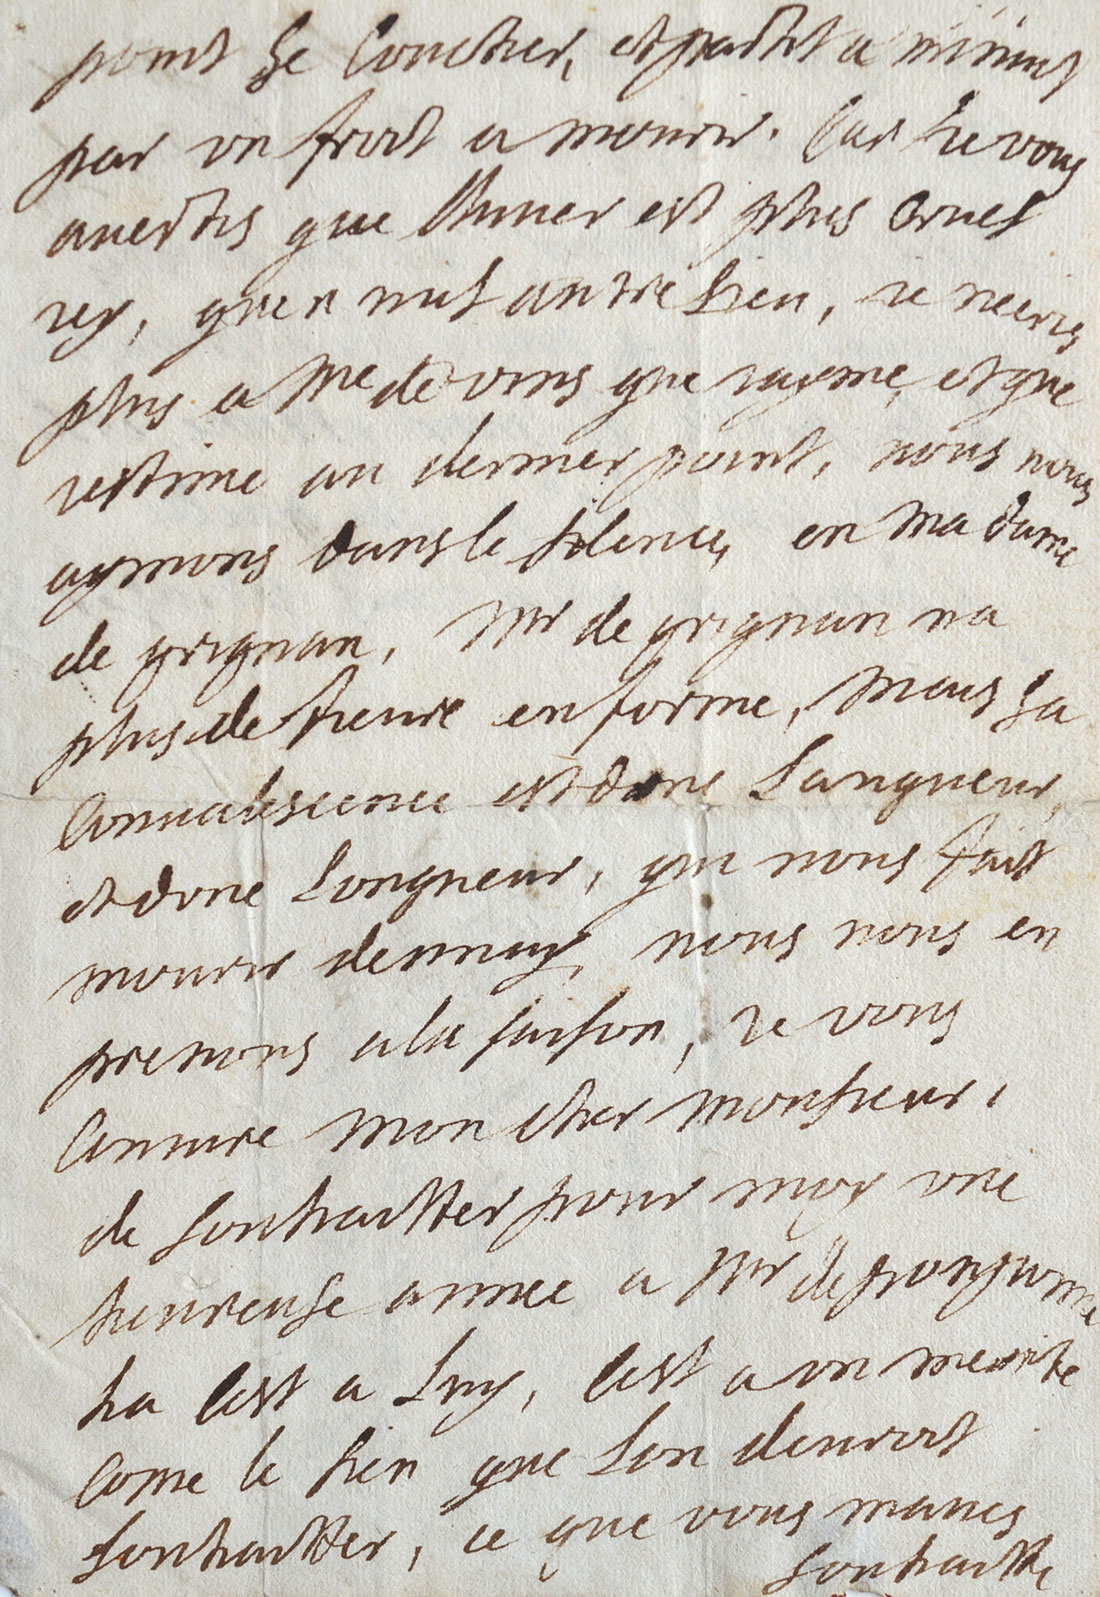 point se coucher, et partit a minuit
par un froit a mourir. Car ie vous
auertis que lhiuer est plus cruel
icy, quen nul autre lieu, ie necris
plus a Me de que iayme, et que
iestime au dernier point, nous nous
aymons dans le silence, en Madame
de grignan, Mr de grignan na
plus de fieure en forme, mais sa
Conualescence est dune Langueur,
et dune Longueur, qui nous fait
mourir dennuy, nous nous en
prenons a la saison, ie vous
Coniure mon cher monsieur,
de souhaitter pour moy une
heureuse année a Mr de
ha cest a Luy, cest a un merite
Come le sien que Lon deuroit
souhaitter, ce que vous maues
souhaitté